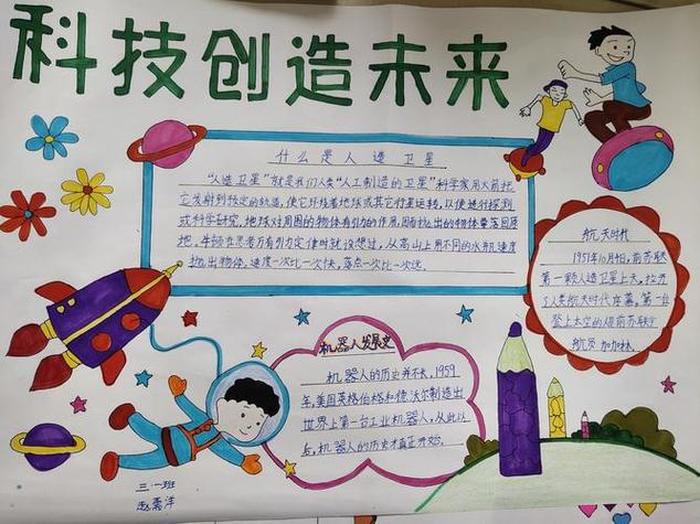 科技创造未来
什么是人造卫星
"人造卫星"就是我们人类"人工制造的卫星"科学家用火箭把
它发射到预定的轨道,使它环绕着地球或其它行星运转,以便进行探测
或科学研究,地球对周围的物体有引力的作用,因而抛出的物体要落回原
地,牛顿在思考万有引力定律时就设想过,从高山上用不同的水平速度
抛出物体,速度一次比一次快,落点一次比一次远.
航天时代
1957年10月4日,前苏联
第一颗人造卫星上天,拉开
了人类航天时代序幕,第一位
登上太空的便前苏联宇
航员 加加林.
机器人发展史
机器人的历史并不长,1959
年,美国英格伯格和德沃尔制造出
世界上第一台工业机器人,从此以
后,机器人的历史才真正开始.
三·一班